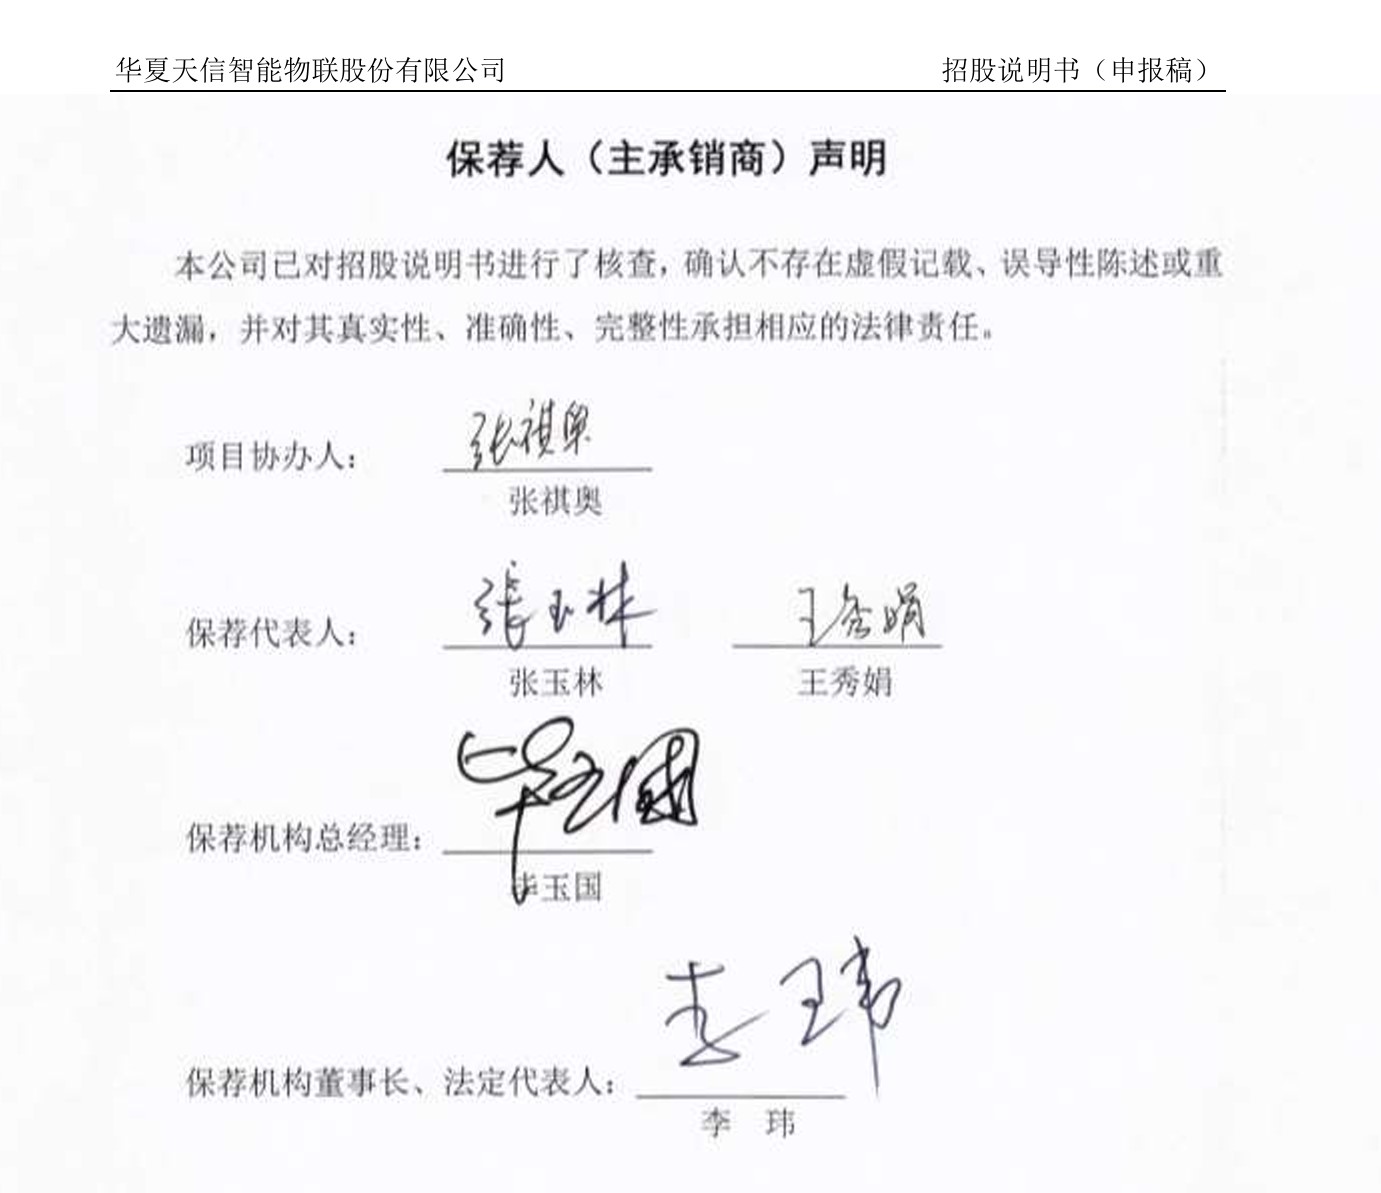 华夏天信智能物联股份有限公司 招股说明书（申报稿）
保荐人（主承销商）声明
本公司已对招股说明书进行了核查，确认不存在虚假记载、误导性陈述或重
大遗漏，并对其真实性、准确性、完整性承担相应的法律责任。
张祺奥
项目协办人：
张祺奥
張玉林 王秀娟
保荐代表人：
张玉林 王秀娟
毕玉國
保荐机构总经理：
毕玉国
李玮
保荐机构董事长、法定代表人：
李 玮